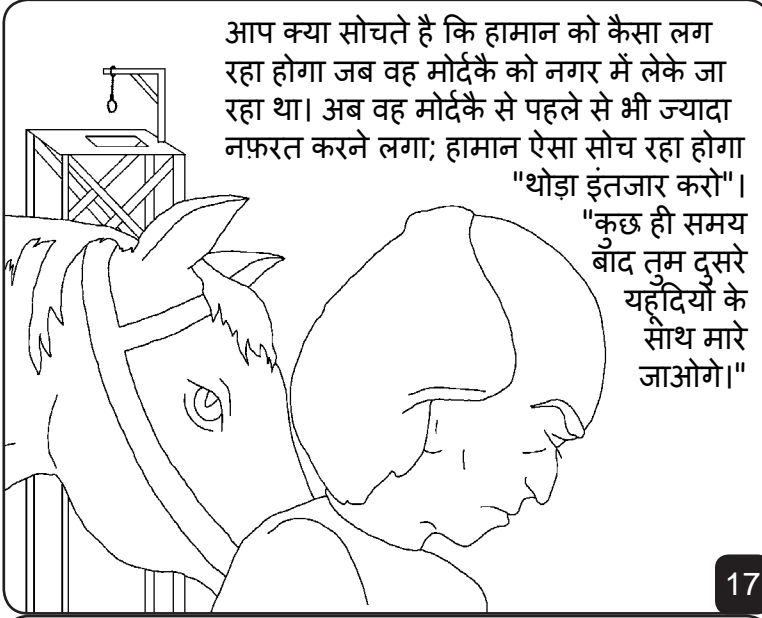 आप क्या सोचते है कि हामान को कैसा लग
रहा होगा जब वह मोर्दकै को नगर में लेके जा
रहा था। अब वह मोर्दकै से पहले से भी ज्यादा
नफ़रत करने लगा; हामान ऐसा सोच रहा होगा
"थोड़ा इंतजार करो"।
"कुछ ही समय
बाद तुम दुसरे
यहूदियों के
साथ मारे
जाओगे।"
17